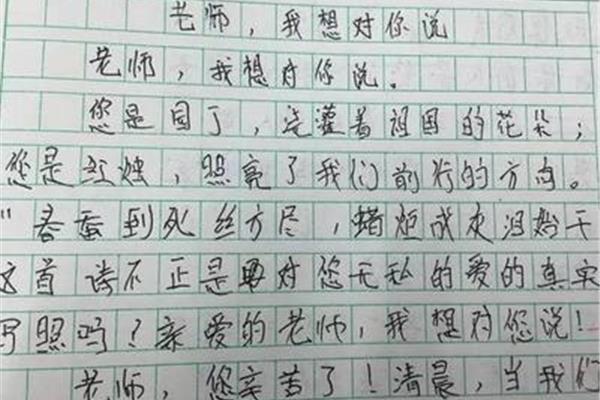 老师，我想对你说
老师，我想对你说。
您是园丁，浇灌着祖国的花朵；
您是红烛，照亮了我们前行的方向。
"春蚕到死丝方尽，蜡炬成灰泪始干
这首诗不正是要对您无私的爱的真实
写照吗？亲爱的老师，我想对您说！
老师，您辛苦了！清晨，当我们